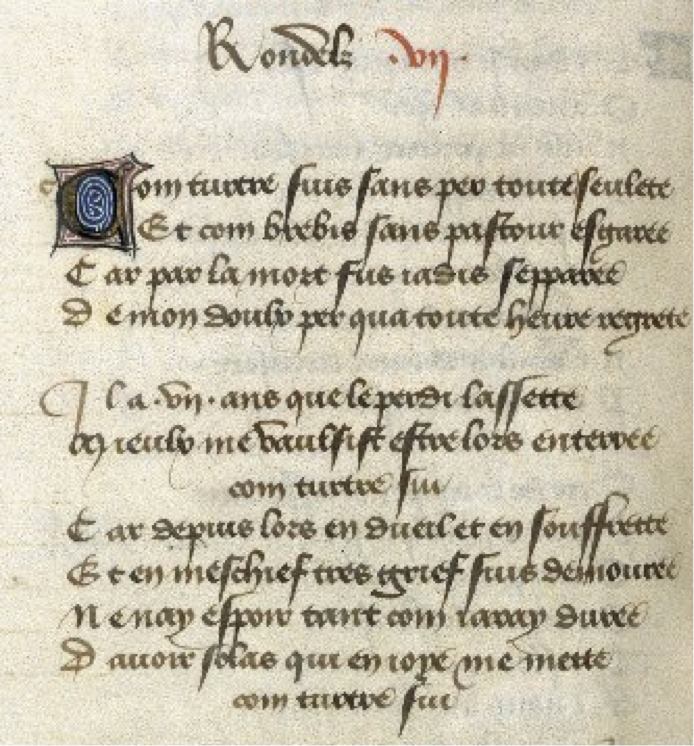 Rondelz .vij.
Com turtre suis sans per toute seulete
Et com brebis sans pastour esgaree
Car par la mort fus iadis sepparee
De mon doulx per qua toute heure regrete
Il a .vij. ans que le perdi lassette
Mieulx me vaulsist estre lors enterree
com turtre sui
Car depuis lors en dueil et en souffrette
Et en meschief tres grief suis demouree
Ne nay espoir tant com iaray duree
Dauoir solas qui en ioye me mette
com turtre sui